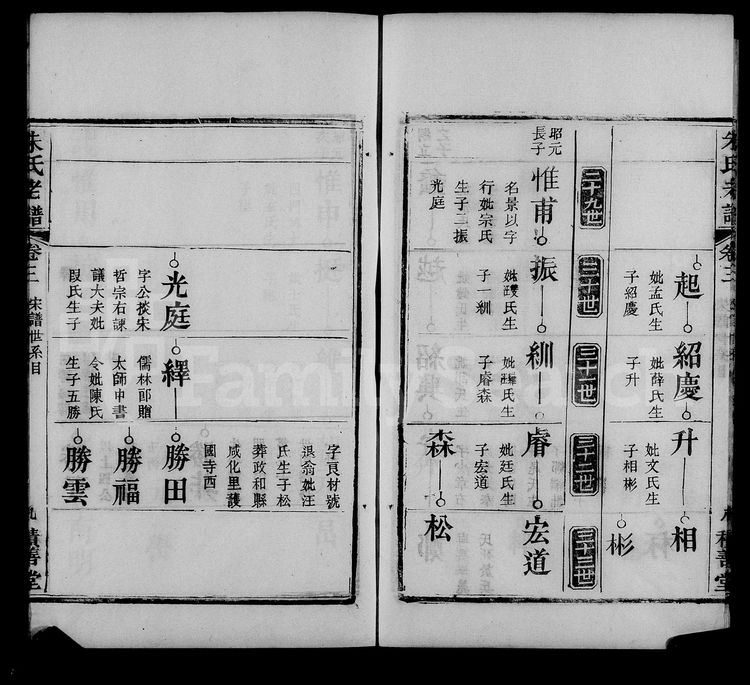 朱氏老譜
卷三
積善堂
起
妣孟氏生
子紹慶
紹慶
妣薛氏生
子升
升
妣文氏生
子相彬
相
彬
二十九世
三十世
三十一世
三十二世
三十三世
昭元
長子
惟甫
名景以字
行妣宗氏
生子二振
光庭
振
氏生
子一紃
紃
氏生
子睿森
睿
妣廷氏生
子宏道
宏道
森
松
字良材號
退翁妣汪
氏生子松
葬政和縣
感化里護
國寺西
光庭
字公掞宋
哲宗右諫
議大夫妣
段氏生子
繹
儒林郎贈
太師中書
令妣陳氏
生子五勝
勝田
勝福
勝雲
朱氏老譜
卷三
宋譜世系目
九
積善堂